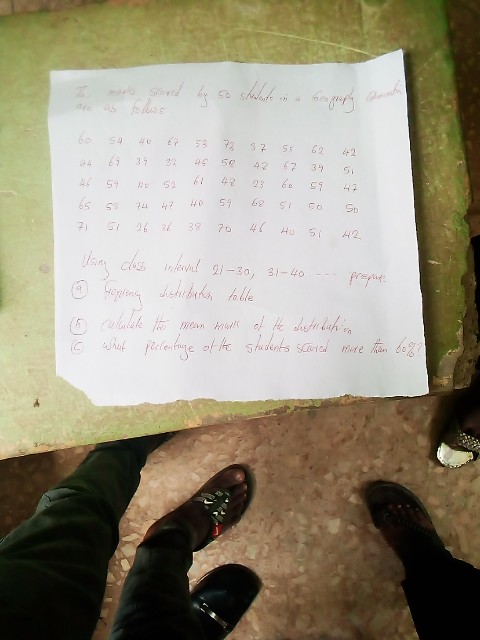 marks scored by 50 students in a Geography
are as follows
60 54 40 67 53 73 37 55 62 42
44 69 39 32 45 58 48 67 39 51
46 59 40 52 61 48 23 60 59 47
65 58 74 47 40 59 68 51 50 50
71 51 26 36 38 70 46 40 51 42
Using class interval 21-30, 31-40 --- prepare
(a) frequency distribution table
(b) calculate the mean mark of the distribution
(c) what percentage of the students scored more than 60%?